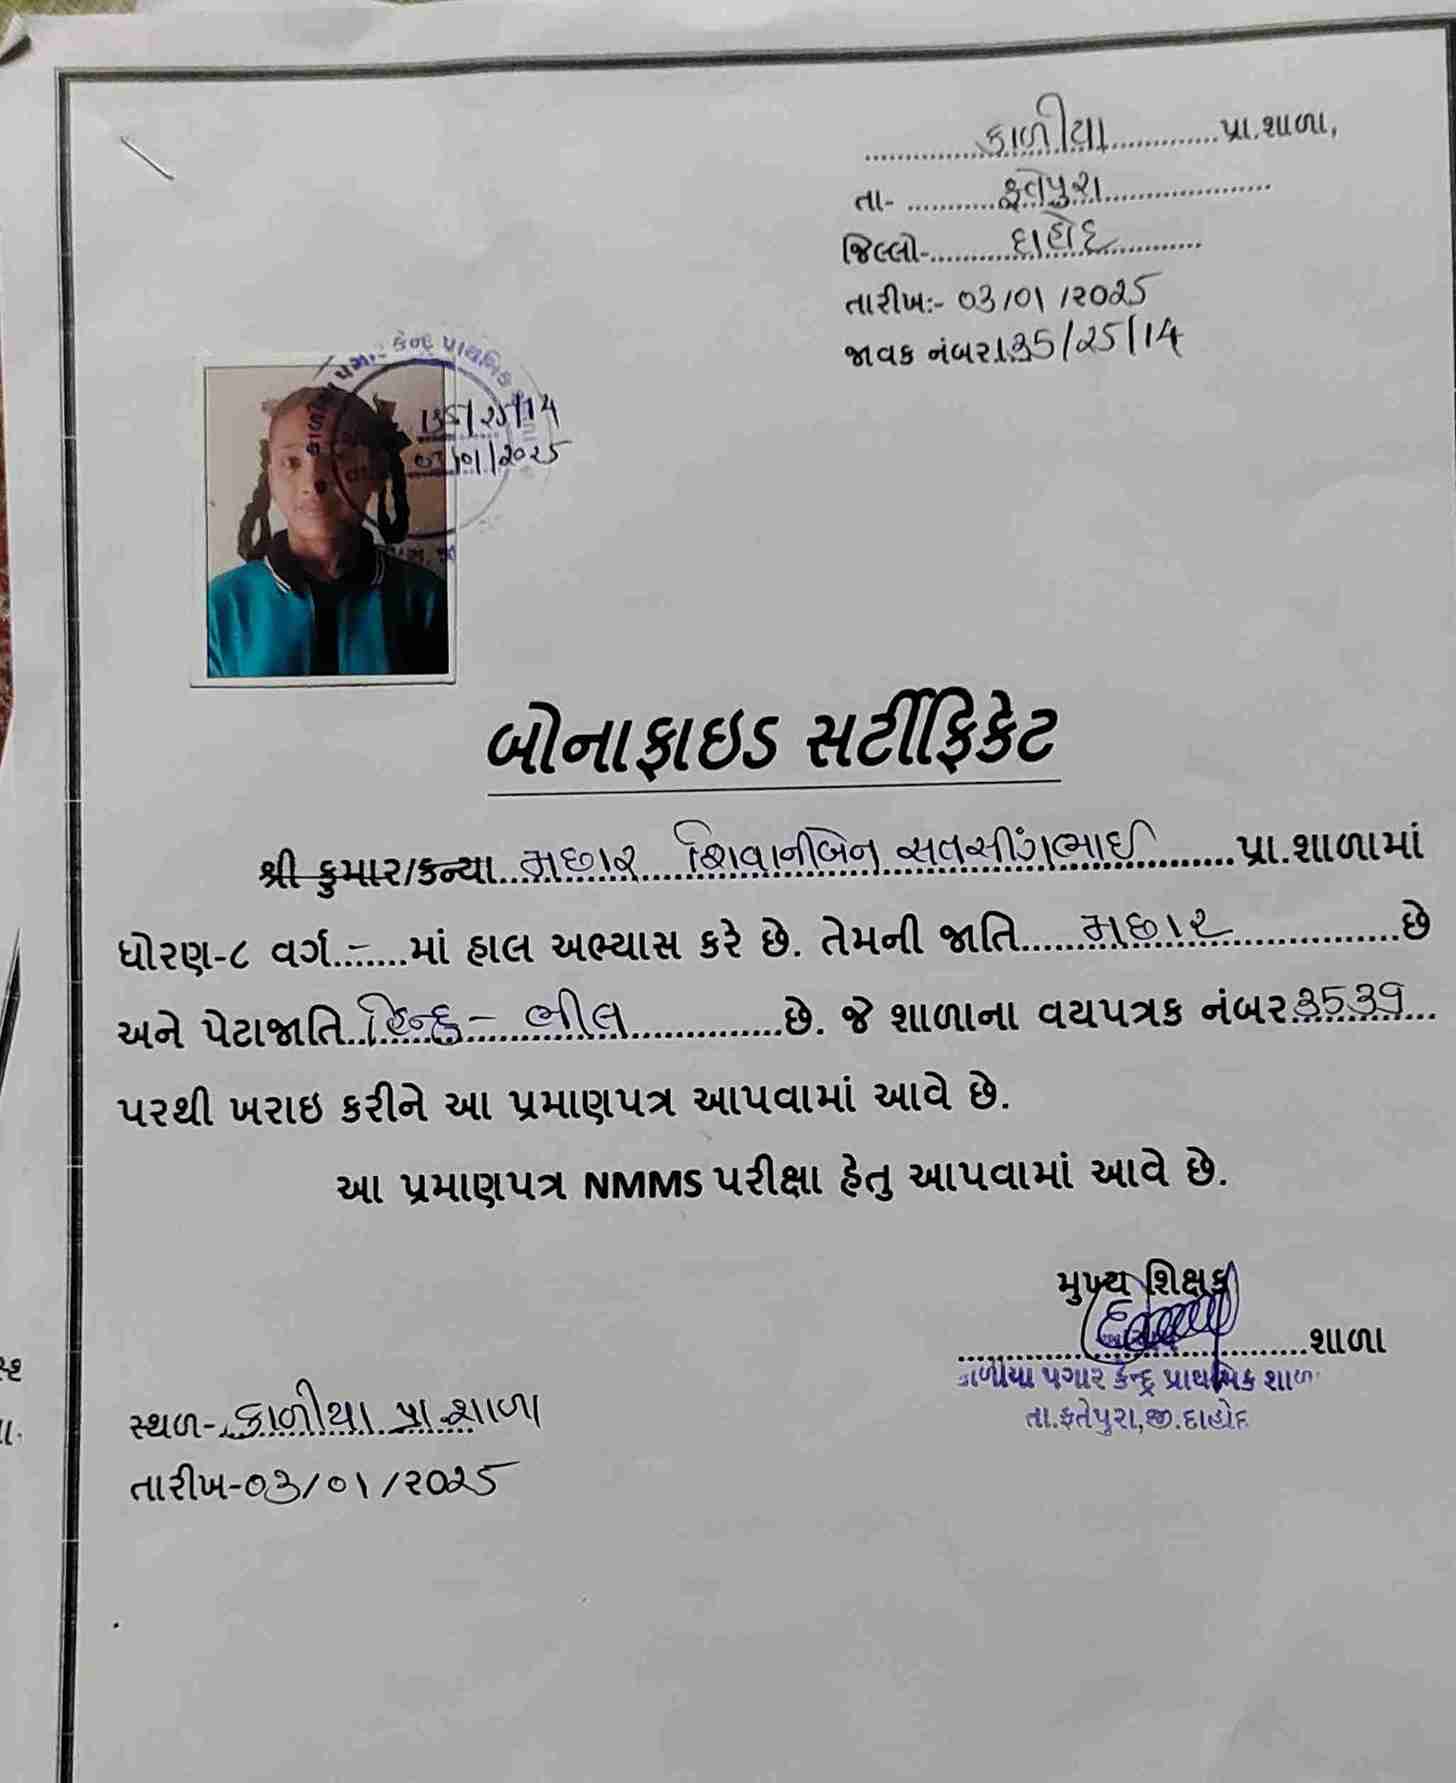 કાળીયા પ્રા.શાળા,
તા- ફતેપુરા
જિલ્લો- દાહોદ
તારીખ:- 03/01/2025
જાવક નંબર 135/25/14
કેન્દ્ર પ્રાથમિક
135/25/14
03/01/2025
બોનાફાઇડ સર્ટીફિકેટ
શ્રી કુમાર/કન્યા મછાર શિવાનીબેન સતસીંગભાઈ પ્રા.શાળામાં
ધોરણ-૮ વર્ગ - માં હાલ અભ્યાસ કરે છે. તેમની જાતિ મછાર છે
અને પેટાજાતિ હિન્દુ - ભીલ છે. જે શાળાના વયપત્રક નંબર 3539
પરથી ખરાઇ કરીને આ પ્રમાણપત્ર આપવામાં આવે છે.
આ પ્રમાણપત્ર NMMS પરીક્ષા હેતુ આપવામાં આવે છે.
મુખ્ય શિક્ષક
શાળા
કાળીયા પગાર કેન્દ્ર પ્રાથમિક શાળા
તા.ફતેપુરા,જી.દાહોદ
સ્થળ- કાળીયા પ્રા.શાળા
તારીખ-03/01/2025